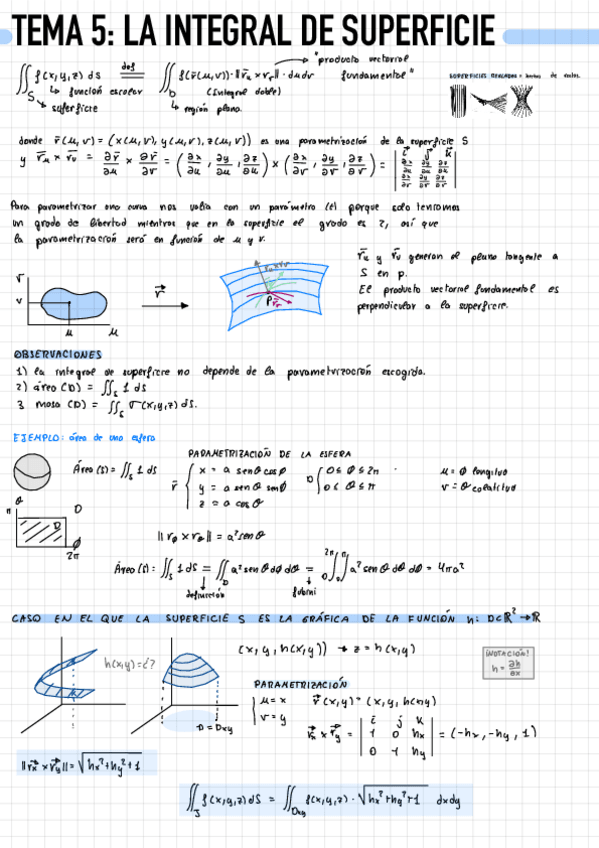 TEMA 5: LA INTEGRAL DE SUPERFICIE
∬_S f(x,y,z) ds def= ∬_D f(r̄(u,v))·‖r̄u × r̄v‖·dudv
"producto vectorial fundamental"
↳ función escalar
(integral doble)
superficie
región plana.
SUPERFICIES REGLADAS = hechas de rectas.
donde r̄(u,v) = (x(u,v), y(u,v), z(u,v)) es una parametrización de la superficie S
y r̄u × r̄v = ∂r̄/∂u × ∂r̄/∂v = (∂x/∂u, ∂y/∂u, ∂z/∂u) × (∂x/∂v, ∂y/∂v, ∂z/∂v) = | i j k ; ∂x/∂u ∂y/∂u ∂z/∂u ; ∂x/∂v ∂y/∂v ∂z/∂v |
Para parametrizar una curva nos valía con un parámetro (t) porque solo teníamos
un grado de libertad mientras que en la superficie el grado es 2, así que
la parametrización será en función de u y v.
r̄u y r̄v generan el plano tangente a
S en p.
El producto vectorial fundamental es
perpendicular a la superficie.
v
v
u
u
r̄
ru x rv
P
OBSERVACIONES
1) la integral de superficie no depende de la parametrización escogida.
2) área (D) = ∬_S 1 dS
3 masa (D) = ∬_S σ(x,y,z) dS.
EJEMPLO: área de una esfera
Área (S) = ∬_S 1 dS
PARAMETRIZACIÓN DE LA ESFERA
r̄ { x = a senθ cosϕ
y = a senθ senϕ
z = a cosθ
D { 0 ≤ ϕ ≤ 2π
0 ≤ θ ≤ π
u = ϕ longitud
v = θ colatitud
θ
π
D
D
ϕ
2π
‖rϕ × rθ‖ = a² senθ
Área (S): ∬_S 1 dS = ∬_D a² senθ dϕ dθ = ∫_0^2π ∫_0^π a² senθ dθ dϕ = 4πa²
definición
fubini
CASO EN EL QUE LA SUPERFICIE S ES LA GRÁFICA DE LA FUNCIÓN h: D⊂ℝ² → ℝ
h(x,y)=¿?
D = Dxy
(x, y, h(x,y)) → z = h(x,y)
¡NOTACIÓN!
h = ∂h/∂x
PARAMETRIZACIÓN
{ u = x
v = y
r̄(x,y) = (x, y, h(x,y)
r̄x × r̄y = | i j k ; 1 0 hx ; 0 1 hy | = (-hx, -hy, 1)
‖r̄x × r̄y‖ = √(hx² + hy² + 1)
∬_S f(x,y,z) dS = ∬_Dxy f(x,y,z) · √(hx² + hy² + 1) dxdy